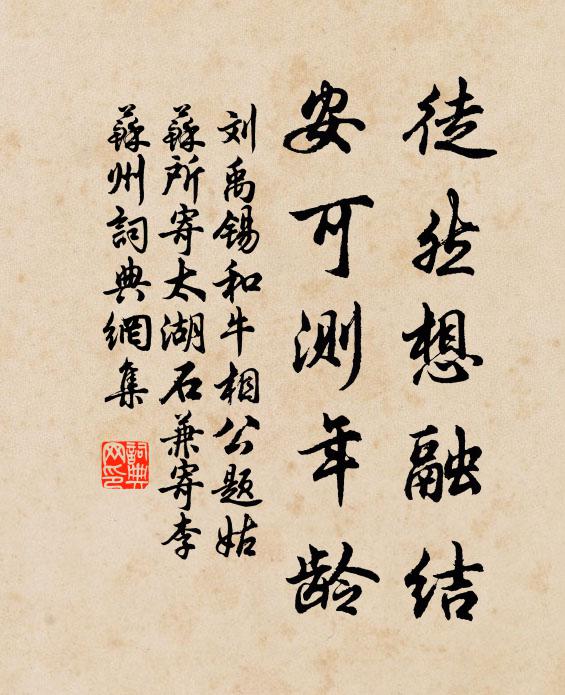 徒然想融结
安可测年龄
刘禹锡和牛相公题姑
苏所寄太湖石兼寄李
苏州词典网集
詞典网印